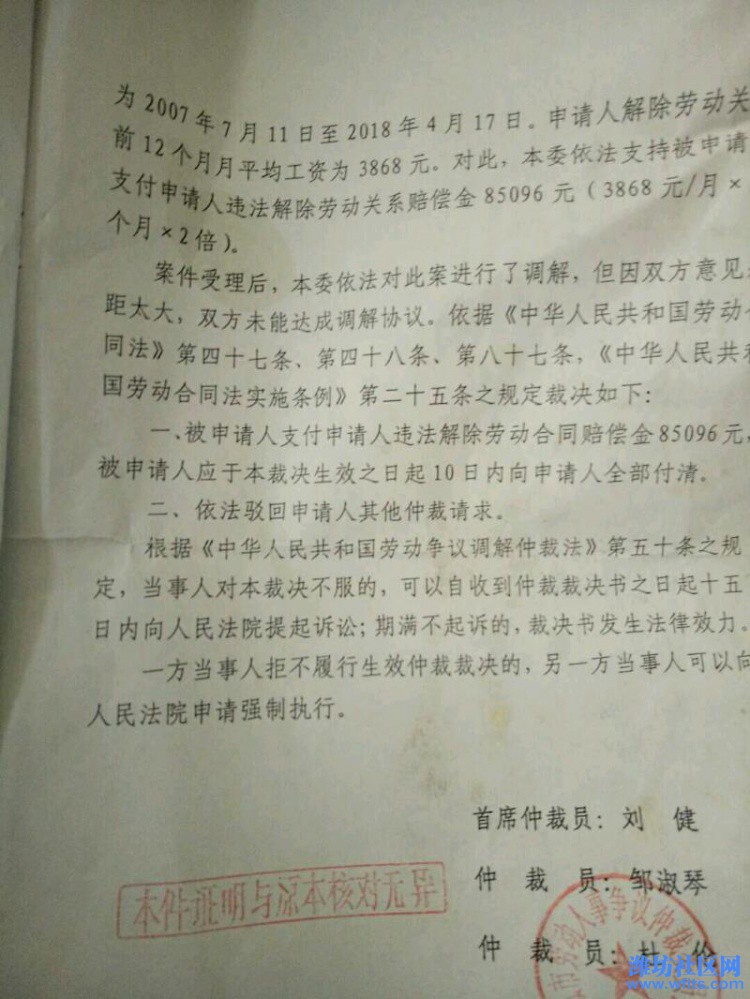 为2007年7月11日至2018年4月17日。申请人解除劳动关
前12个月月平均工资为3868元。对此，本委依法支持被申请
支付申请人违法解除劳动关系赔偿金85096元（3868元/月×
个月×2倍）。
案件受理后，本委依法对此案进行了调解，但因双方意见
距太大，双方未能达成调解协议。依据《中华人民共和国劳动
同法》第四十七条、第四十八条、第八十七条，《中华人民共和
国劳动合同法实施条例》第二十五条之规定裁决如下：
一、被申请人支付申请人违法解除劳动合同赔偿金85096元，
被申请人应于本裁决生效之日起10日内向申请人全部付清。
二、依法驳回申请人其他仲裁请求。
根据《中华人民共和国劳动争议调解仲裁法》第五十条之规
定，当事人对本裁决不服的，可以自收到仲裁裁决书之日起十五
日内向人民法院提起诉讼；期满不起诉的，裁决书发生法律效力。
一方当事人拒不履行生效仲裁裁决的，另一方当事人可以向
人民法院申请强制执行。
首席仲裁员：刘 健
仲 裁 员：邹淑琴
仲 裁 员：杜 伦
本件证明与原本核对无异
市劳动人事争议仲裁
潍坊社区网
www.wfits.com